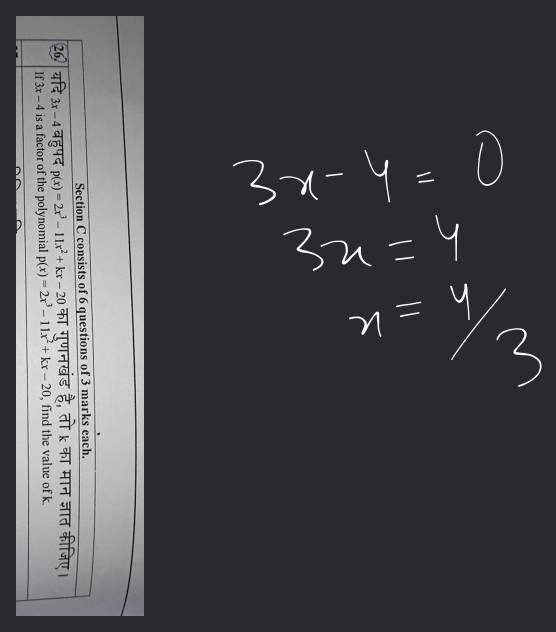 Section C consists of 6 questions of 3 marks each.
26. यदि 3x – 4 बहुपद p(x) = 2x³ – 11x² + kx – 20 का गुणनखंड है, तो k का मान ज्ञात कीजिए।
If 3x – 4 is a factor of the polynomial p(x) = 2x³ – 11x² + kx – 20, find the value of k.
3x - 4 = 0
3x = 4
x = 4/3